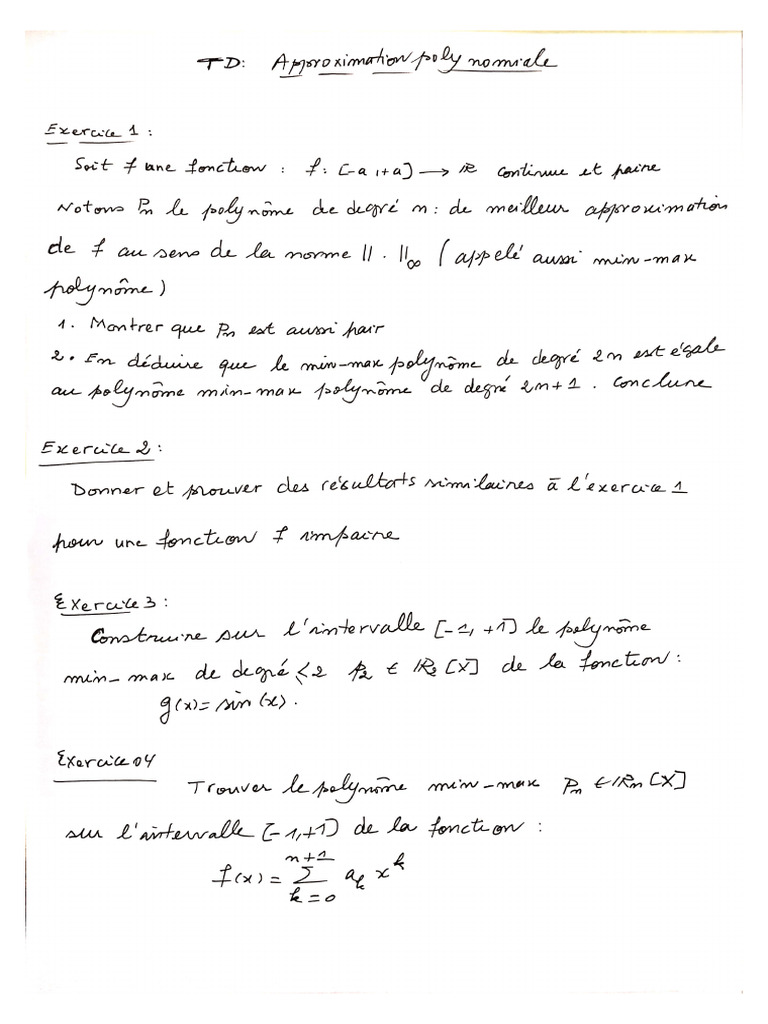 TD: Approximation polynomiale
Exercice 1 :
Soit f une fonction : f : [-a, +a] → ℝ continue et paire
Notons Pn le polynôme de degré n : de meilleur approximation
de f au sens de la norme ||.||∞ (appelé aussi min-max
polynôme)
1. Montrer que Pn est aussi pair
2. En déduire que le min-max polynôme de degré 2n est égale
au polynôme min-max polynôme de degré 2n+1. Conclure
Exercice 2 :
Donner et prouver des résultats similaires à l'exercice 1
pour une fonction f impaire
Exercice 3 :
Construire sur l'intervalle [-1, +1] le polynôme
min-max de degré ≤ 2 P2 ∈ ℝ2[X] de la fonction :
g(x) = sin(x).
Exercice 04
Trouver le polynôme min-max Pn ∈ ℝn[X]
sur l'intervalle [-1, +1] de la fonction :
f(x) = Σ_{k=0}^{n+1} a_k x^k